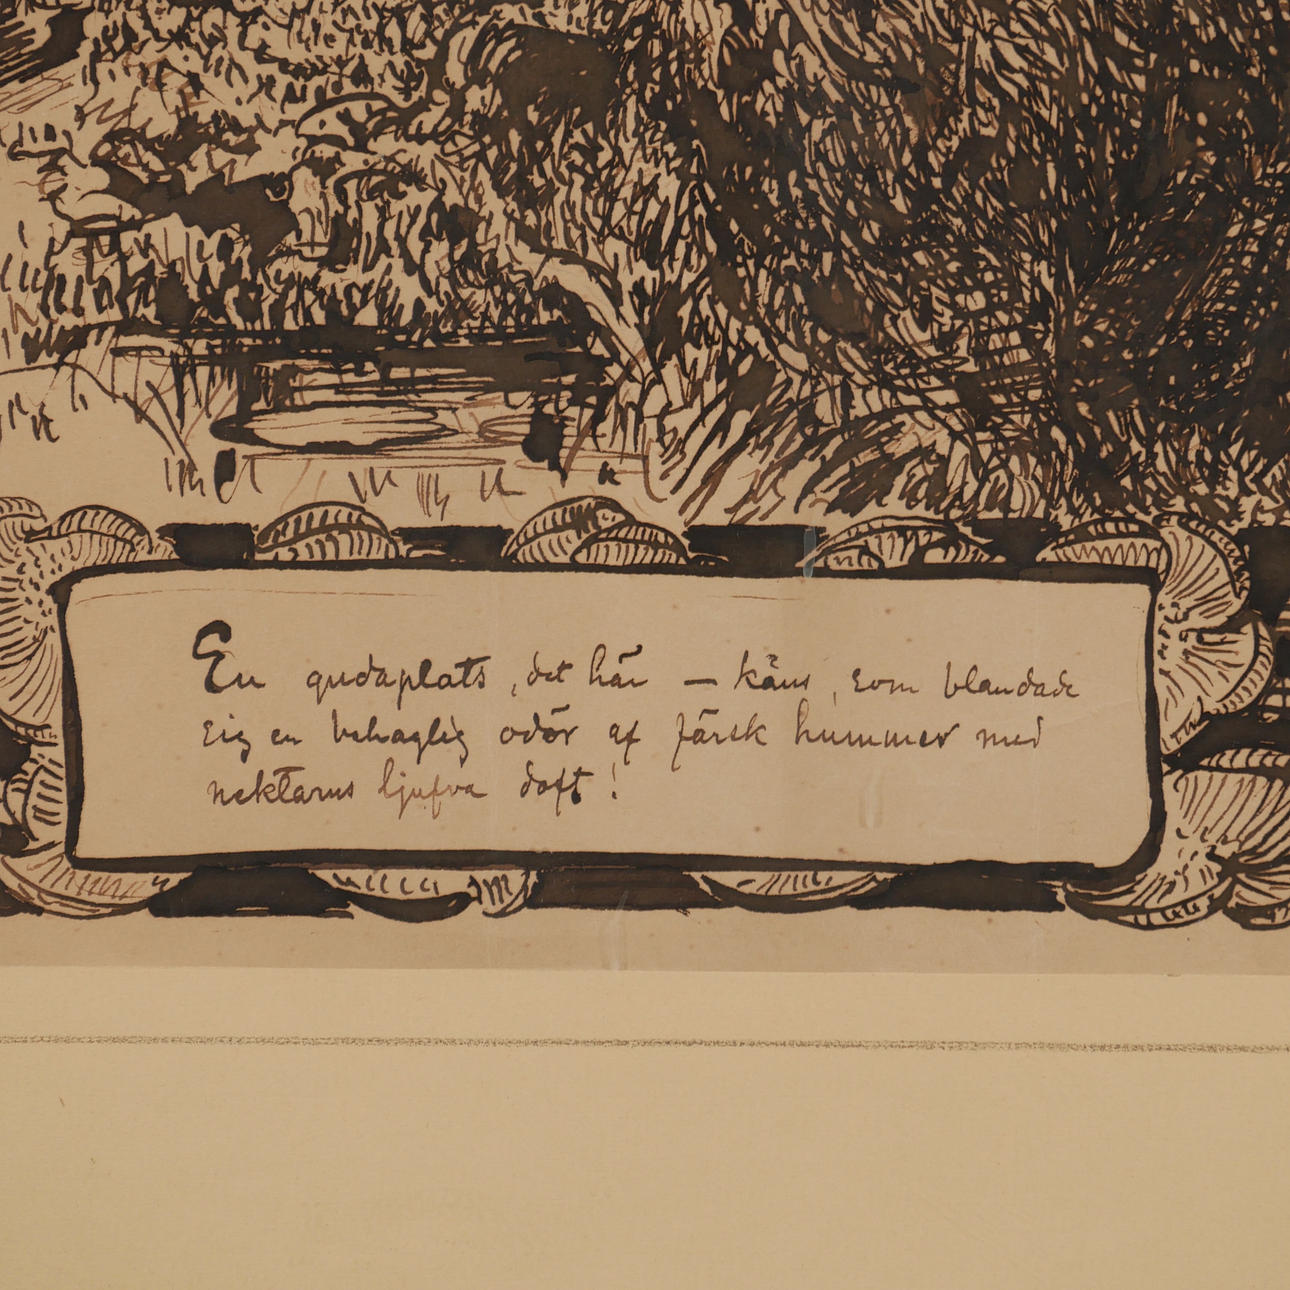 En gudaplats, det här — käns, som blandade
sig en behaglig odör af färsk hummer med
nektarns ljufva doft!